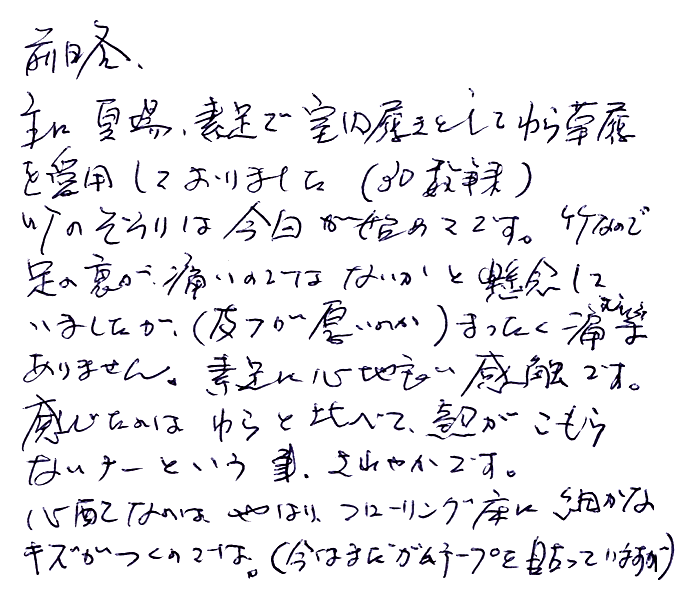 前略、
主に夏場、素足で室内履きとしてわら草履
を愛用しておりました(30数年来)
竹のぞうりは今回が始めてです。竹なので
足の裏が痛いのではないかと懸念して
いましたが、(皮フが厚いのか)まったく痛
ありません。素足に心地良い感触です。
感じたのはわらと比べて、熱がこもら
ないナーという事、さわやかです。
心配なのは、やはり、フローリング床に細かな
キズがつくのでは。(今はまだガムテープを貼っていますが)